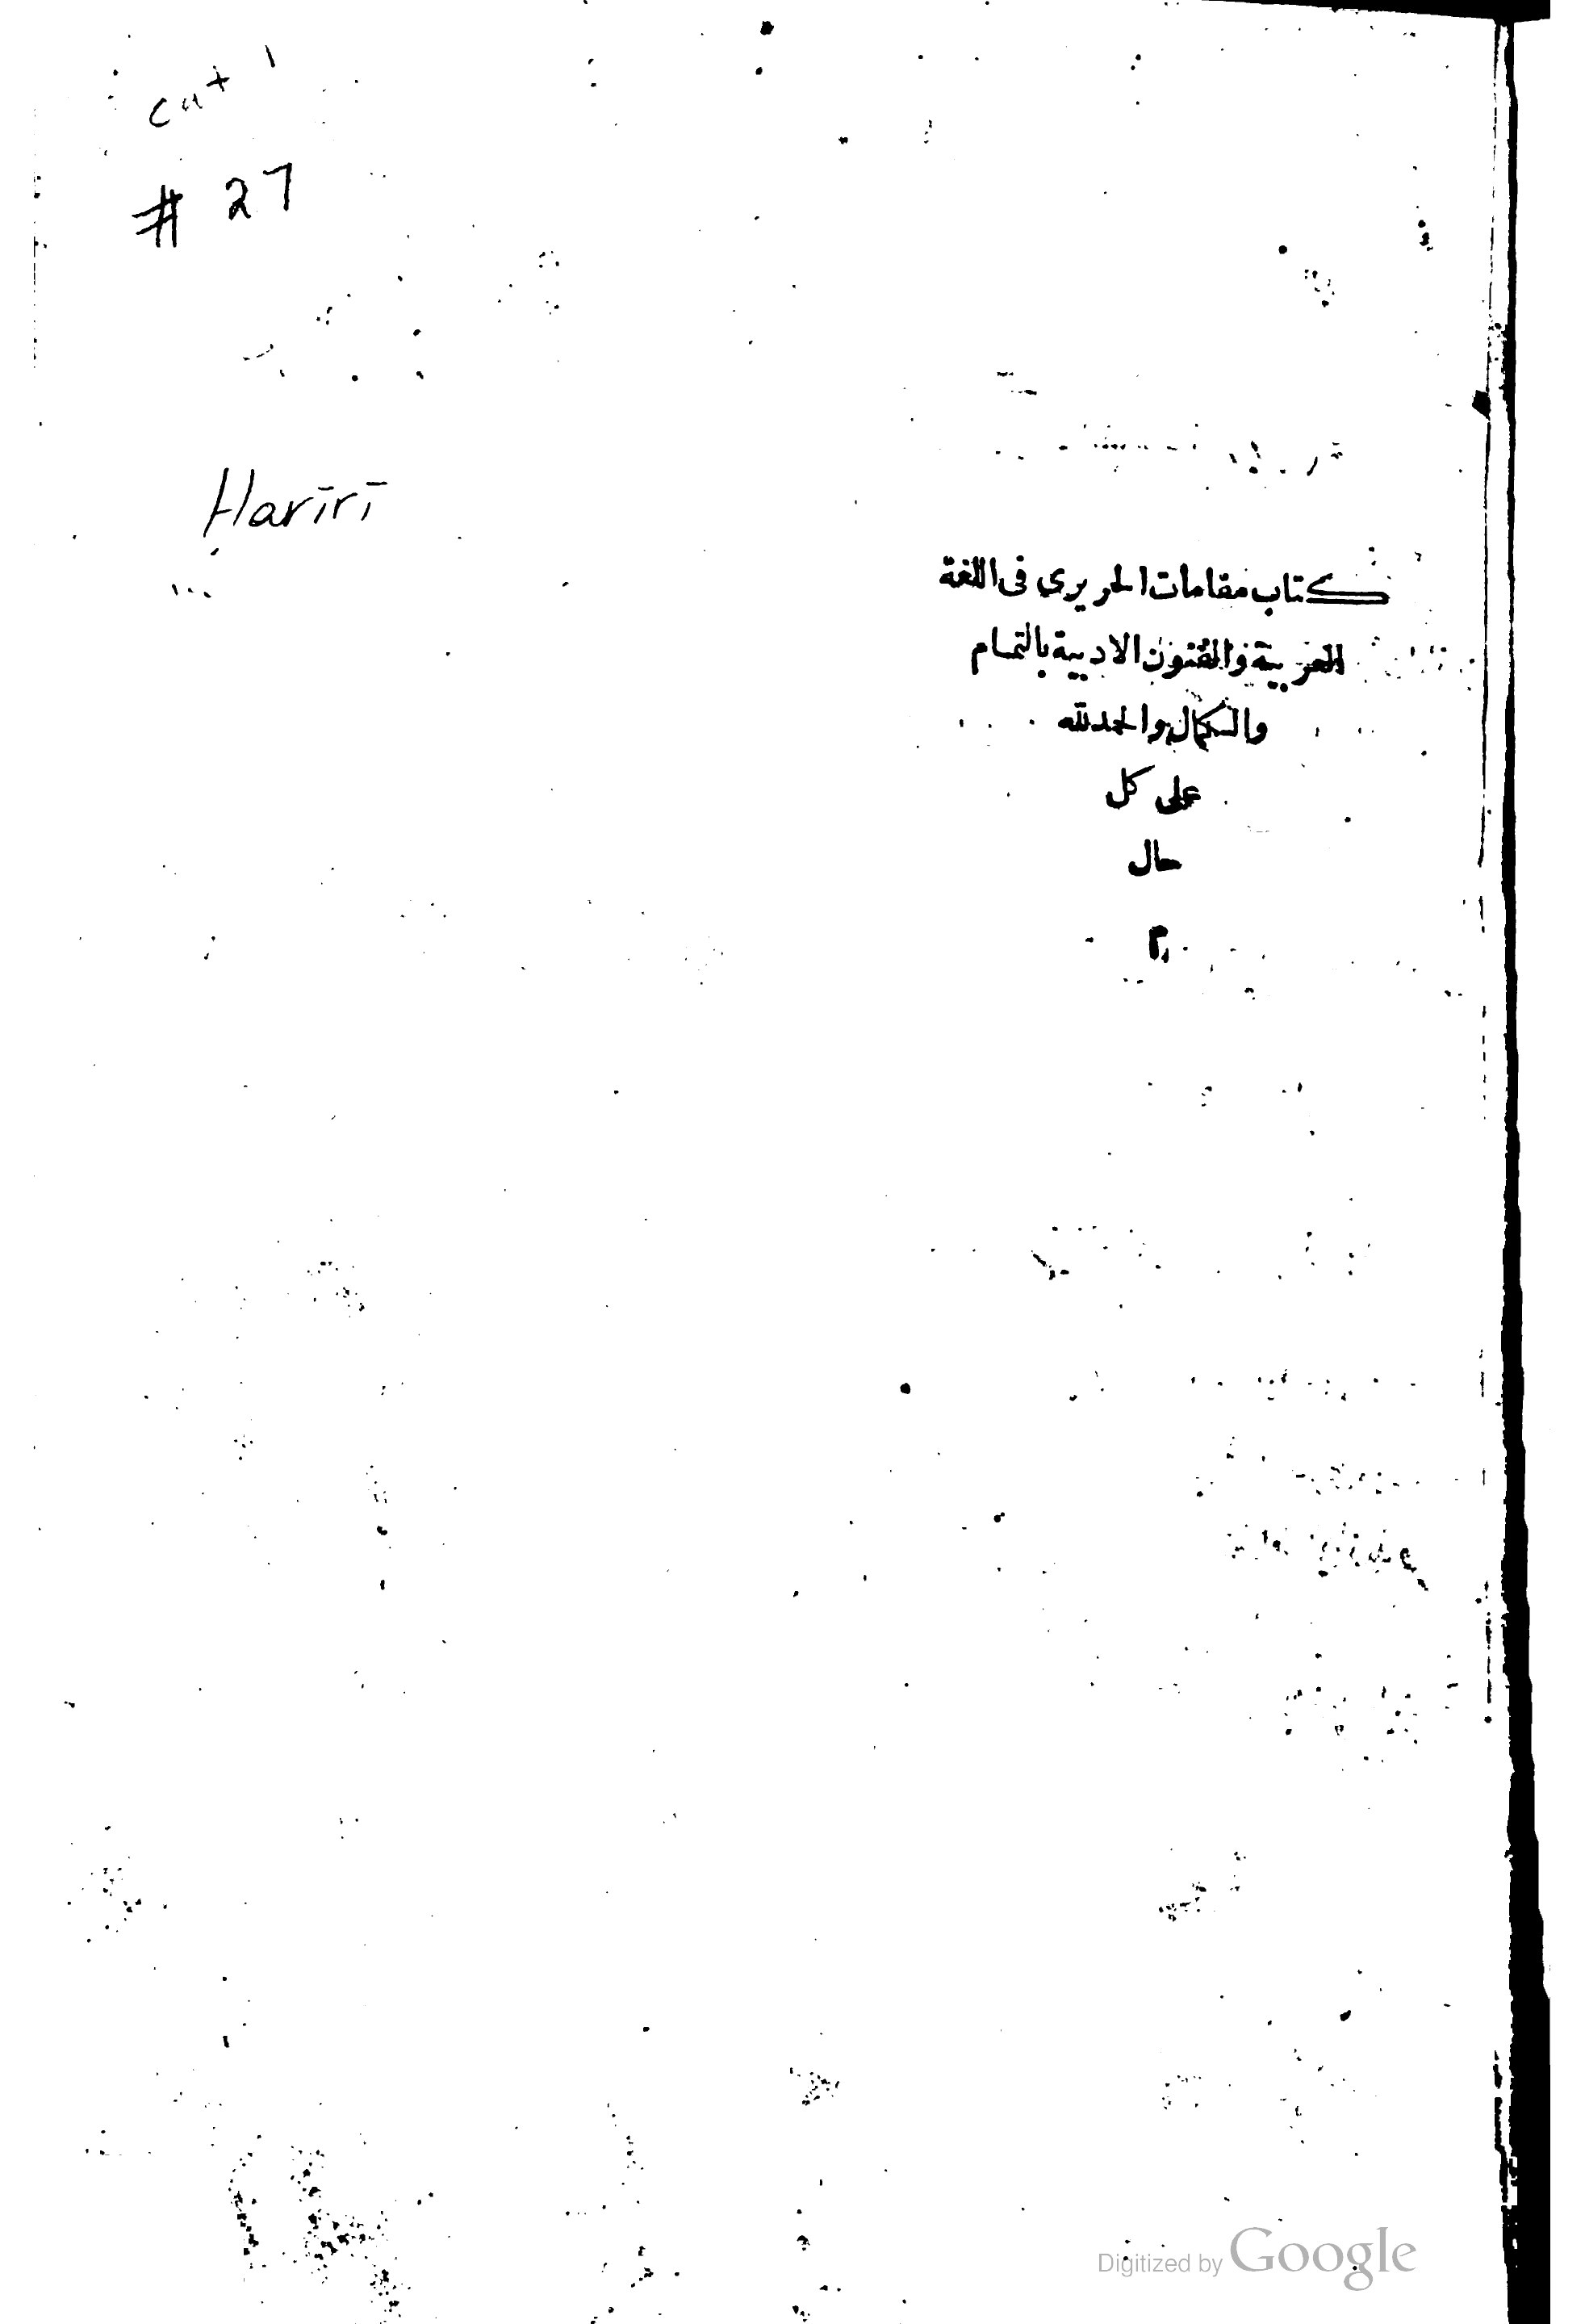 cat 1
# 27
Ḥarīrī
كتاب مقامات الحريري فى اللغة
العربية والفنون الادبية بالتمام
والكمال والحمد لله
على كل
حال
م
Digitized by Google